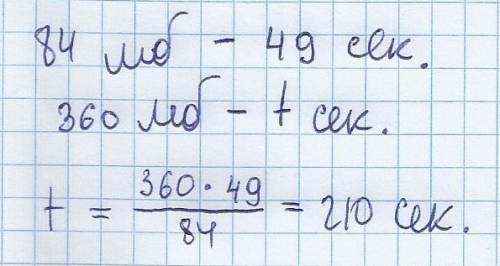 84 мб - 49 сек.
360 мб - t сек.
t = 360 · 49 / 84 = 210 сек.